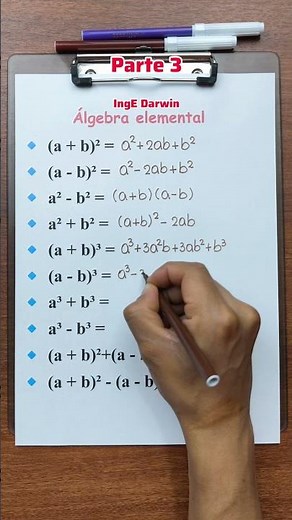 Parte 3
IngE Darwin
Álgebra elemental
(a + b)² = a²+2ab+b²
(a - b)² = a²-2ab+b²
a² - b² = (a+b)(a-b)
a² + b² = (a+b)²-2ab
(a + b)³ = a³+3a²b+3ab²+b³
(a - b)³ = a³-
a³ + b³ =
a³ - b³ =
(a + b)²+(a -
(a + b)² - (a - b)